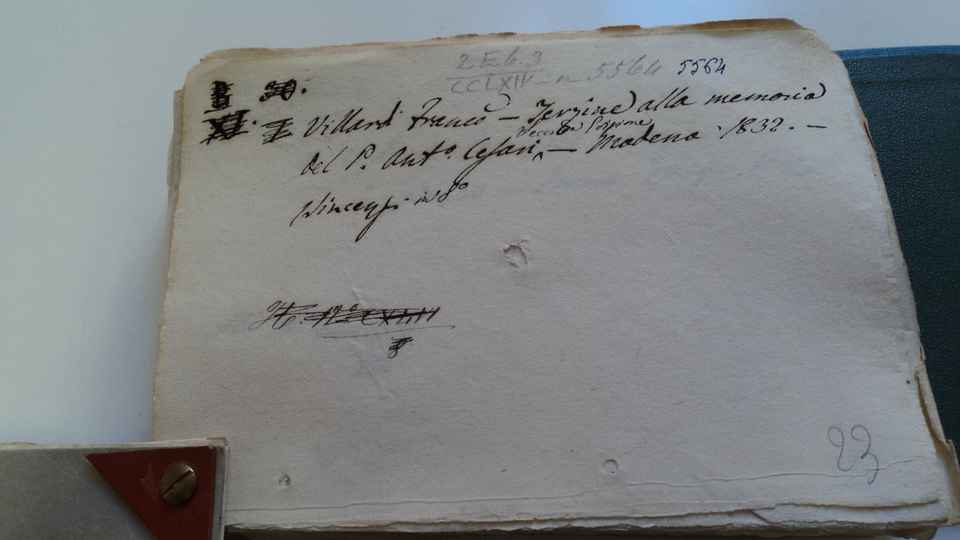 2 E 6. 3
CCLXIV - n. 5564 5564
Villardi Franc.º – Terzine alla memoria
del P. Ant.º Cesari – Seconda Edizione Modena. 1832. –
Vincenzi in 8º
23